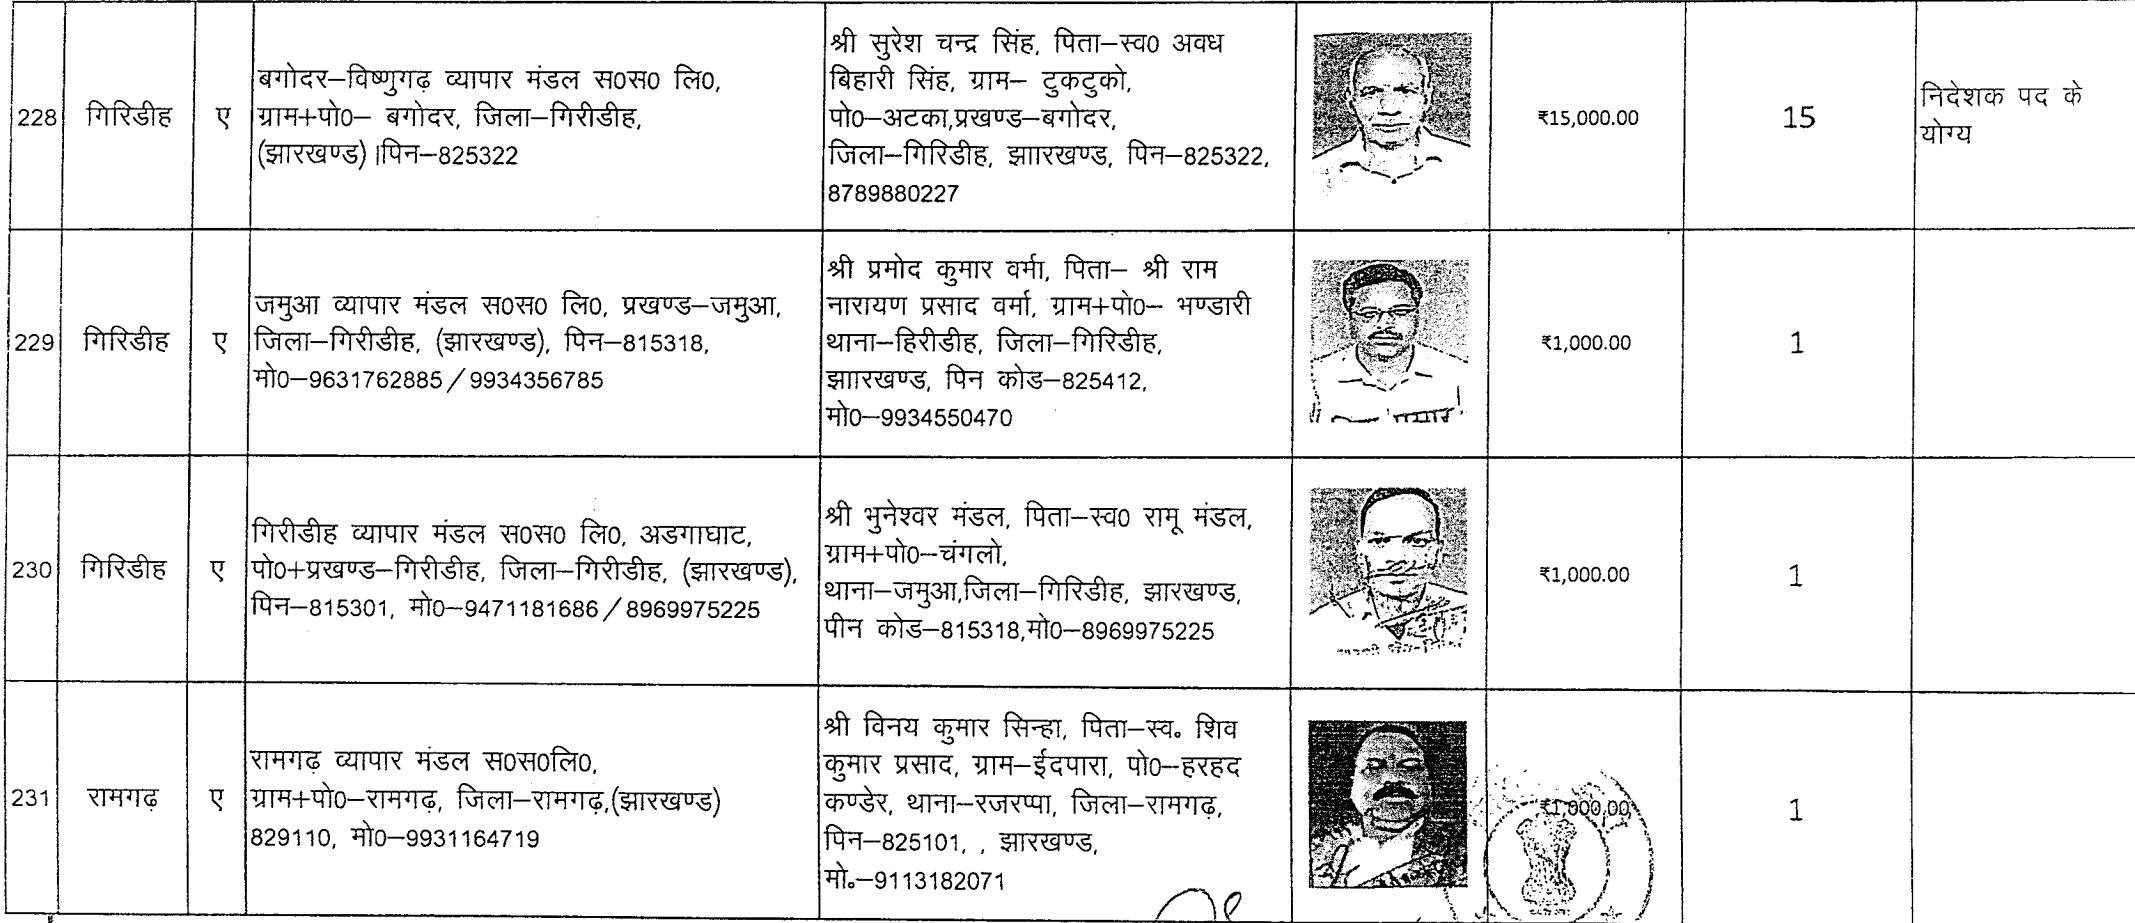 228
गिरिडीह
ए
बगोदर–विष्णुगढ़ व्यापार मंडल स0स0 लि0,
ग्राम+पो0– बगोदर, जिला–गिरीडीह,
(झारखण्ड)।पिन–825322
श्री सुरेश चन्द्र सिंह, पिता–स्व0 अवध
बिहारी सिंह, ग्राम– टुकटुको,
पो0–अटका,प्रखण्ड–बगोदर,
जिला–गिरिडीह, झाारखण्ड, पिन–825322,
8789880227
₹15,000.00
15
निदेशक पद के
योग्य
229
गिरिडीह
ए
जमुआ व्यापार मंडल स0स0 लि0, प्रखण्ड–जमुआ,
जिला–गिरीडीह, (झारखण्ड), पिन–815318,
मो0–9631762885/9934356785
श्री प्रमोद कुमार वर्मा, पिता– श्री राम
नारायण प्रसाद वर्मा, ग्राम+पो0– भण्डारी
थाना–हिरीडीह, जिला–गिरिडीह,
झाारखण्ड, पिन कोड–825412,
मो0–9934550470
₹1,000.00
1
230
गिरिडीह
ए
गिरीडीह व्यापार मंडल स0स0 लि0, अडगाघाट,
पो0+प्रखण्ड–गिरीडीह, जिला–गिरीडीह, (झारखण्ड),
पिन–815301, मो0–9471181686/8969975225
श्री भुनेश्वर मंडल, पिता–स्व0 रामू मंडल,
ग्राम+पो0–चंगलो,
थाना–जमुआ,जिला–गिरिडीह, झारखण्ड,
पीन कोड–815318,मो0–8969975225
₹1,000.00
1
231
रामगढ़
ए
रामगढ़ व्यापार मंडल स0स0लि0,
ग्राम+पो0–रामगढ़, जिला–रामगढ़,(झारखण्ड)
829110, मो0–9931164719
श्री विनय कुमार सिन्हा, पिता–स्व० शिव
कुमार प्रसाद, ग्राम–ईदपारा, पो0–हरहद
कण्डेर, थाना–रजरप्पा, जिला–रामगढ़,
पिन–825101, , झारखण्ड,
मो०–9113182071
₹1,000.00
1